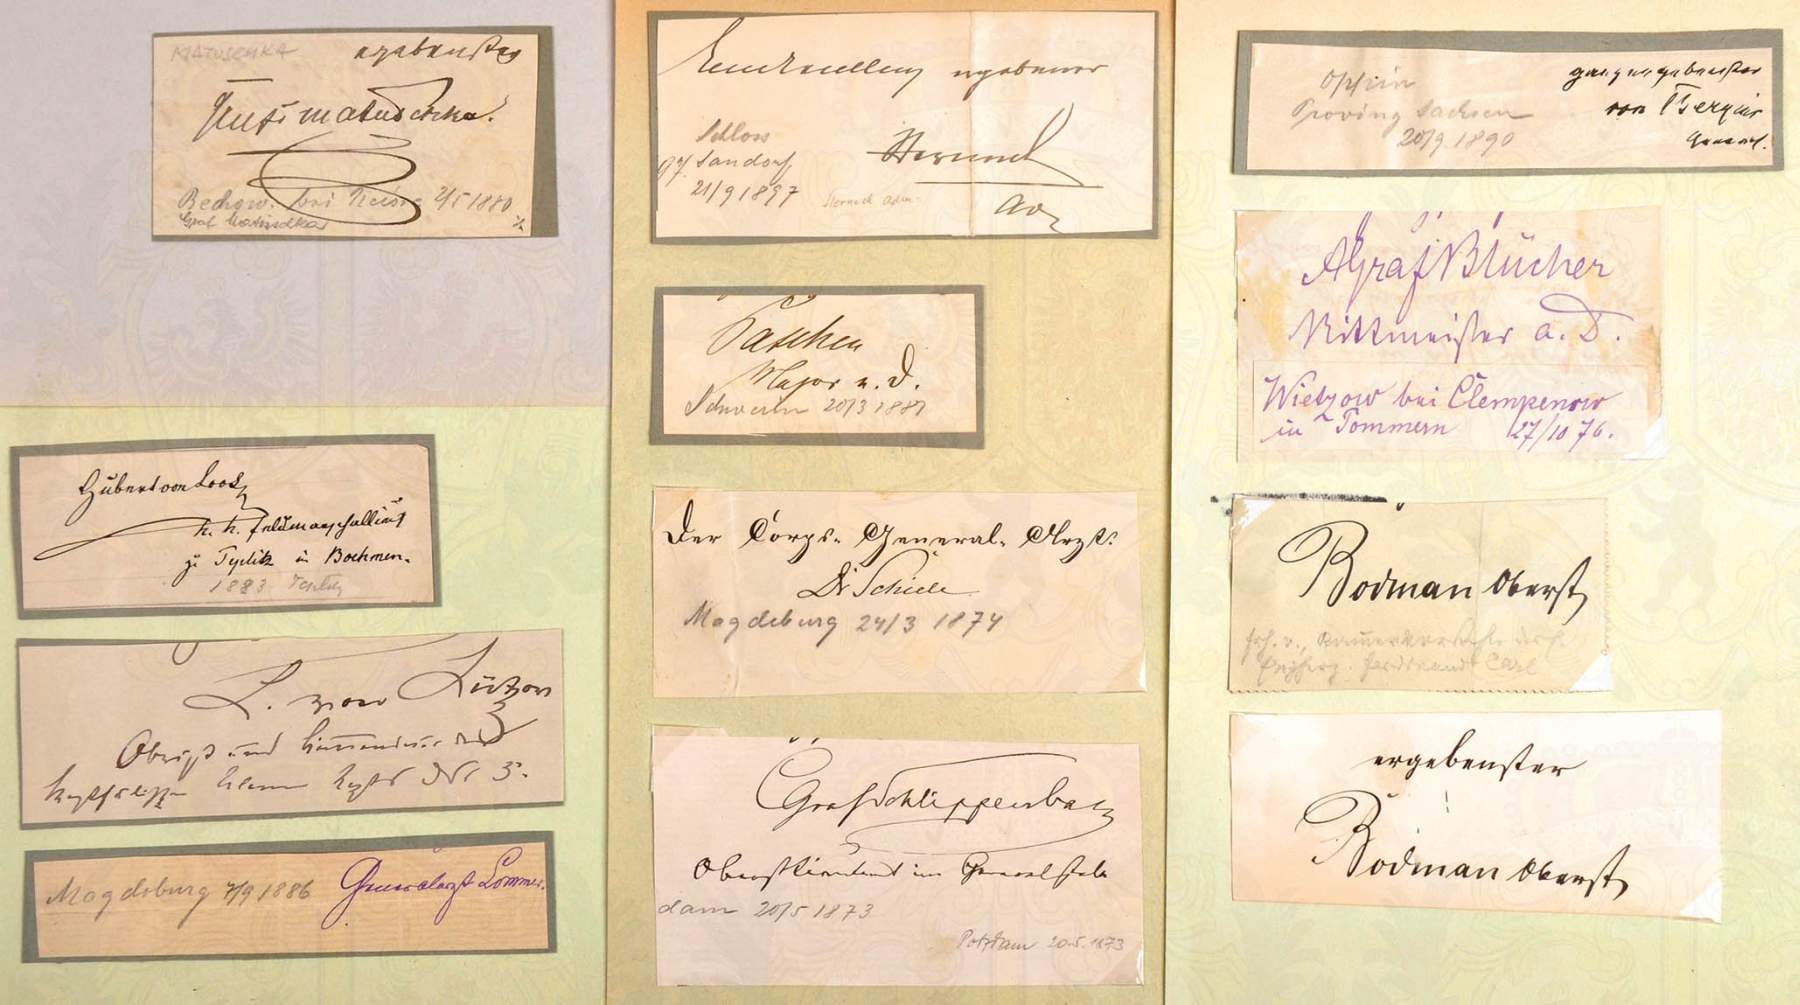 MATUSCHKA
ergebenster
Matuschka
Bechow bei 2/5 1880
Graf Matuschka
Hubert von Loos
k. k. Feldmarschallieut
zu Teplitz in Boehmen.
1883 Teplitz
L. von Lützow
Oberst und Commandeur des
Regts No 3.
Magdeburg 7/9 1886 Generalarzt Lommer.
ergebener
Schloss
Sandorf
21/9 1897
Major a. D.
Schwerin 20/3 1881
Der Corps-General-Arzt.
Dr Schiele
Magdeburg 24/3 1874
Graf Schlippenbach
Oberstlieutenant im Generalstabe
dam 20/5 1873
Potzdam 20.5.1873
ganz ergebenster
Oppin
Provinz Sachsen
20/9 1890
von
General.
A Graf Blücher
Rittmeister a. D.
Wietzow bei Clempenow
in Pommern 27/10 76.
Bodman Oberst
frh. v.,
Erzherz. Ferdinand Carl
ergebenster
Bodman Oberst